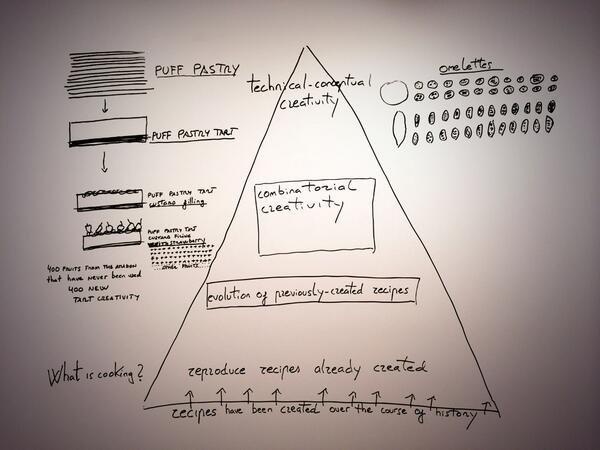 PUFF PASTRY
PUFF PASTRY TART
PUFF PASTRY TART
CUSTARD filling
PUFF PASTRY TART
CUSTARD FILLING
WITH STRAWBERRY
...OTHER FRUITS...
400 FRUITS FROM THE AMAZON
that have never been used
400 NEW
TART CREATIVITY
technical-conceptual
creativity
omelettes
combinatorial
creativity
evolution of previously-created recipes
What is cooking?
reproduce recipes already created
recipes have been created over the course of history